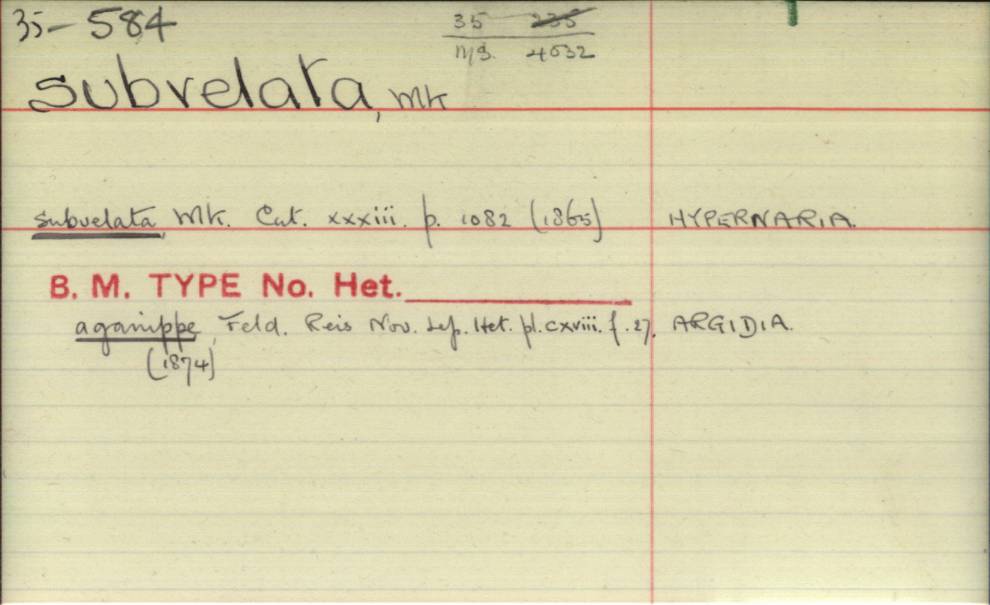 35-584
35 235
n/s. 4032
subvelata, Wlk
subvelata, Wlk. Cat. xxxiii. p. 1082 (1865) HYPERNARIA.
B. M. TYPE No. Het.
aganippe, Feld. Reis Nov. Lep. Het. pl. cxviii. f. 27. ARGIDIA.
(1874)